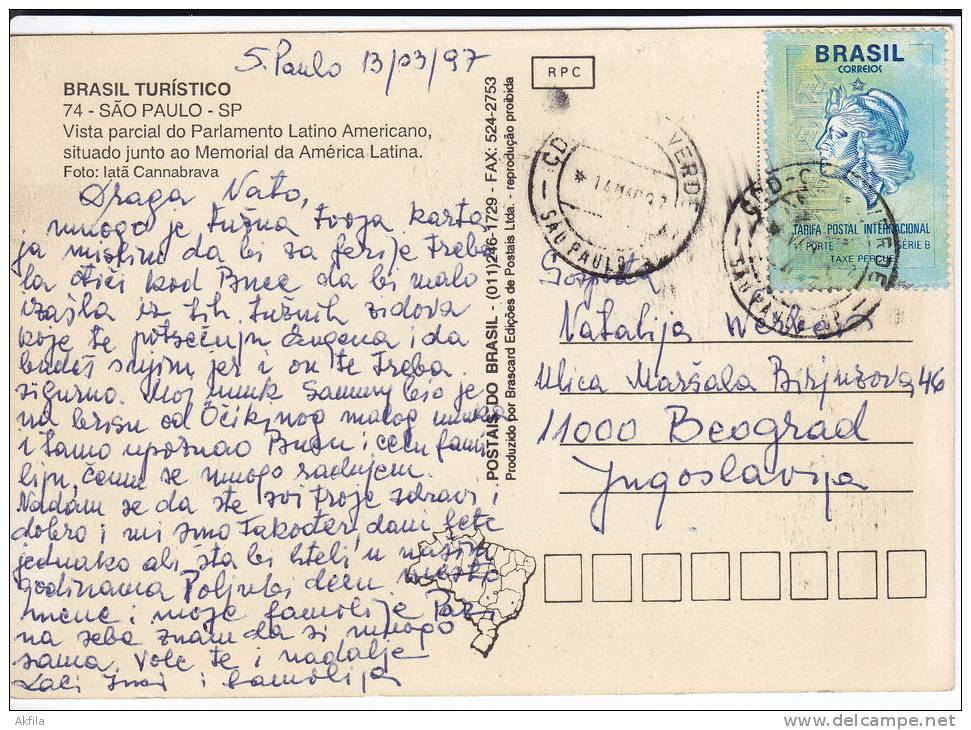 S. Paulo 13/03/97
BRASIL TURÍSTICO
74 - SÃO PAULO - SP
Vista parcial do Parlamento Latino Americano,
situado junto ao Memorial da América Latina.
Foto: Iatã Cannabrava
Draga Nato,
mnogo je tužna tvoja karta
ja mislim da bi za ferije treba
la otići kod Buce da bi malo
izašla iz tih tužnih zidova
koje te potsećaju Eugena i da
budeš s njim jer i on te treba
sigurno. Moj unuk Sammy bio je
na brisu od Očikjnog malog unuka
i tamo upoznao i celu fami
liju, čemu se mnogo radujem.
Nadam se da ste svi troje zdravi i
dobro i mi smo također, dani lete
jednako ali šta bi hteli u našim
godinama Poljubi decu mesto
mene i moje familije Pazi
na sebe znam da si mnogo
sama. Vole te i nadalje
Laci i familija
POSTAIS DO BRASIL - (011)246-1729 - FAX: 524-2753
Produzido por Brascard Edições de Postais Ltda. - reprodução proibida
RPC
CD VERDE
* 14 MAR 97
SAO PAULO
BRASIL
CORREIOS
TARIFA POSTAL INTERNACIONAL
1º PORTE SÉRIE B
TAXE PERÇUE
Gospođa
Natalija
Ulica Maršala Birjuzova 46
11000 Beograd
Jugoslavija
Akfila
delcampe.net